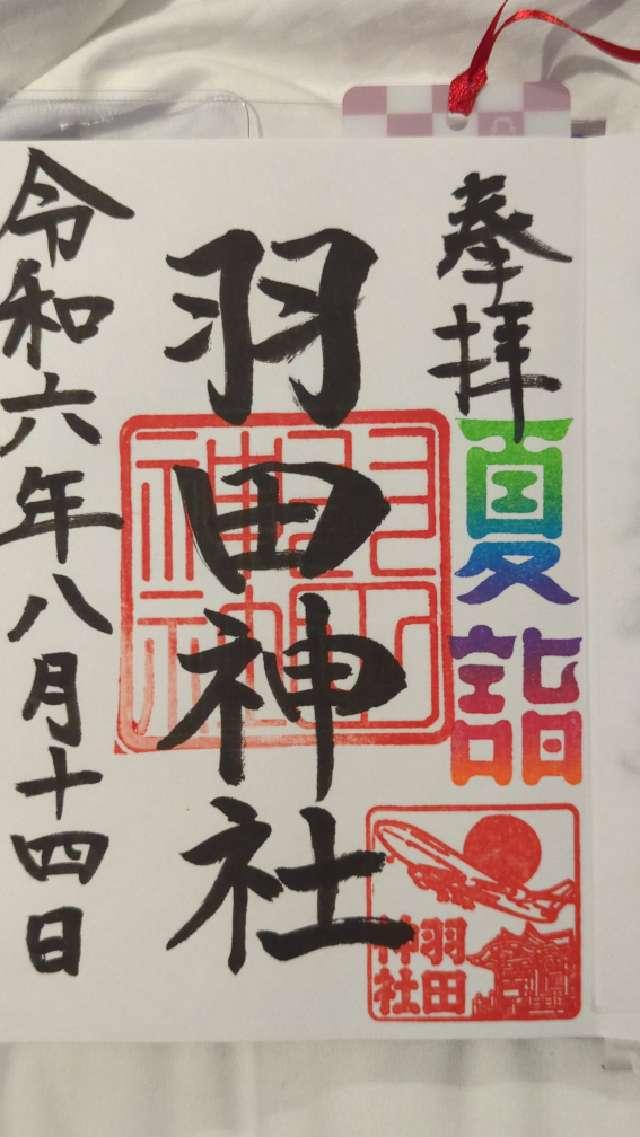 奉拝
夏詣
羽田神社
羽田
神社
羽田
神社
令和六年八月十四日